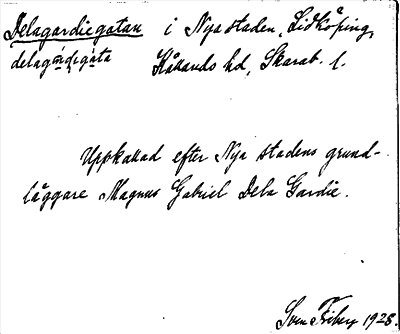 Delagardiegatan i Nya staden, Lidköping,
delagádigàta Kållands hd, Skarab. l.
Uppkallad efter Nya stadens grund-
läggare Magnus Gabriel Dela Gardie.
Sven Friberg 1928.